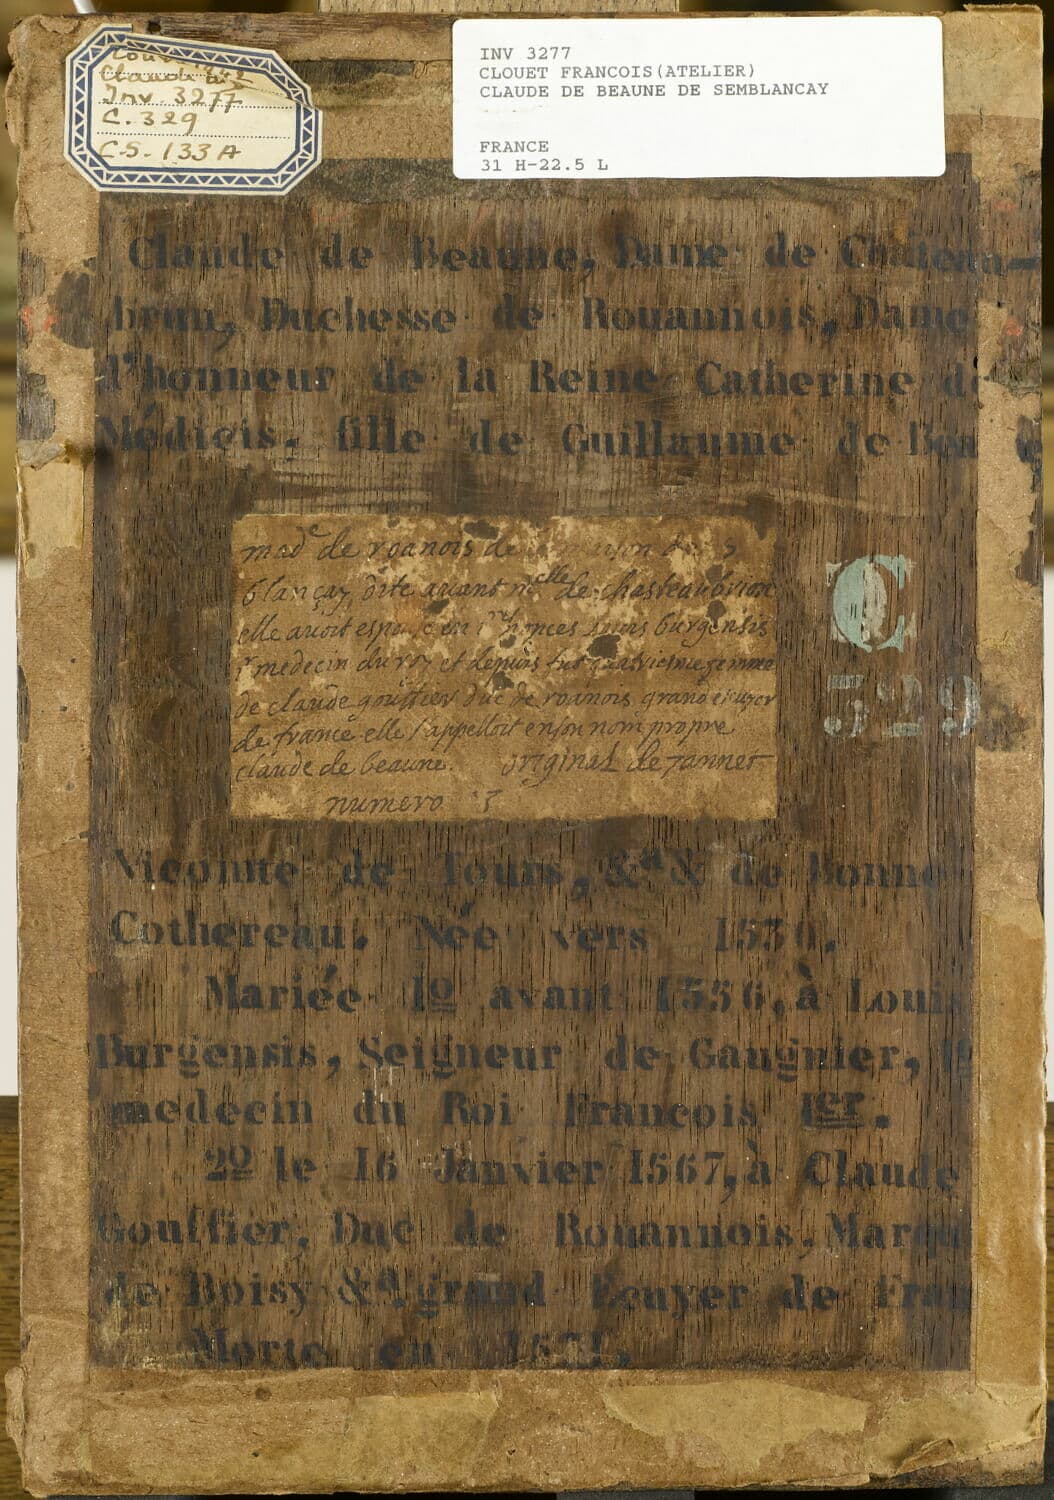 Inv. 3277
C. 329
CS. 133 A
INV 3277
CLOUET FRANCOIS(ATELIER)
CLAUDE DE BEAUNE DE SEMBLANCAY
FRANCE
31 H-22.5 L
Claude de Beaune, Dame de Chateau-
brun, Duchesse de Rouannois, Dame
d'honneur de la Reine Catherine de
Médicis, fille de Guillaume de
made de roanois de
blançay, dite avant melle de chasteaubrion
elle avoit en honces louis burgensis
medecin du roy et depuis fut quatriesme femme
de claude gouffier duc de roanois grand escuyer
de france elle s'appelloit en son nom propre
claude de beaune. original de jannet
numero
C
329
Vicomte de Tours, &a & de Bonne
Cothereau. Née vers 1530.
Mariée 1o avant 1556, à Louis
Burgensis, Seigneur de Gaugnier, 1er
medecin du Roi Francois 1er.
2o le 16 Janvier 1567, à Claude
Gouffier, Duc de Rouannois,
de Boisy &a. grand Ecuyer de
Morte en